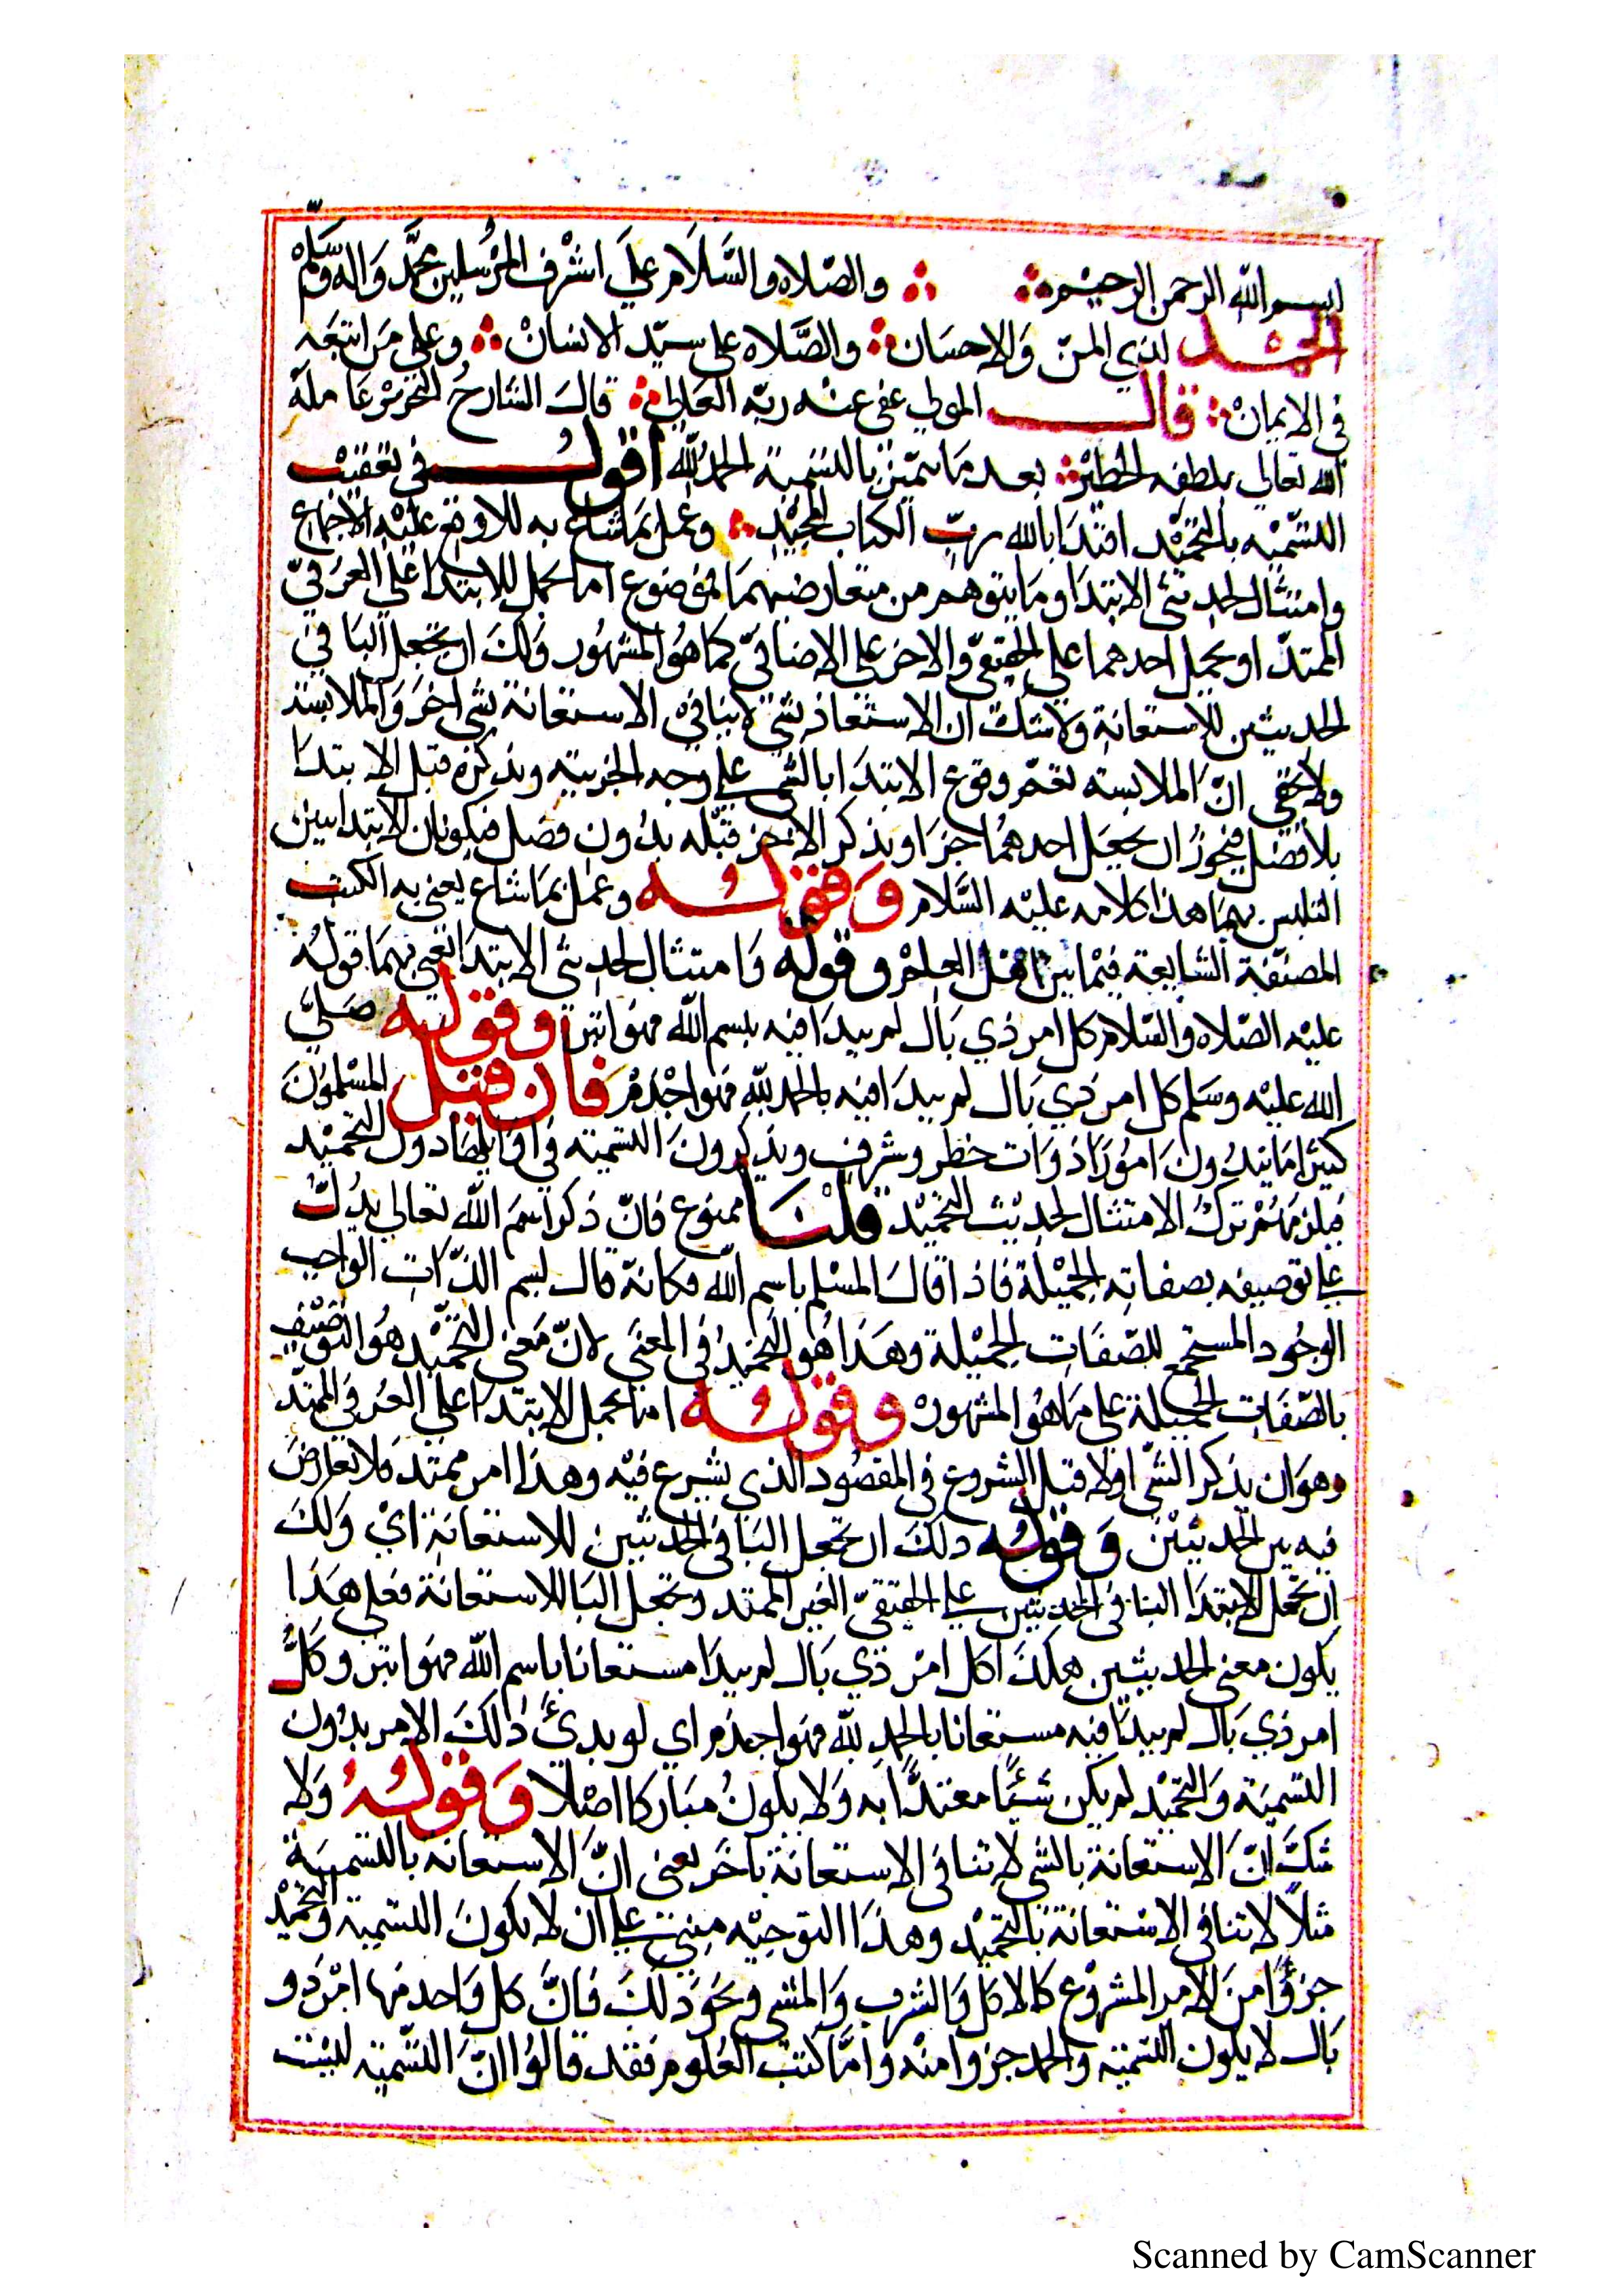 بسم الله الرحمن الرحيم والصلاه والسلام على اشرف المرسلين محمد واله وسلم
الحمد لذي المن والاحسان والصلاه على سيد الانسان وعلى من اتبعه
في الايمان قال المولى عفى عنه ربه العلي قال الشارح عامله
الله تعالى بلطفه الخطير بعد ما تيمن بالتسمية الحمد لله اقول في تعقيب
التسميه بالتحميد اقتدا بالله رب الكتاب المجيد وعمل بما شاع به بل وقع عليه الاجماع
وامتثال لحديثي الابتدا وما يتوهم من تعارضهما فموضوع اما بحمل الابتدا على العرفي
الممتد او بحمل احدهما على الحقيقي والاخر على الاضافي كما هو المشهور ولك ان تجعل البا في
الحديثين للاستعانة ولا شك ان الاستعانة بشي لا ينافي الاستعانة بشي اخر والملابسة
ولا يخفى ان الملابسة تعم وقوع الابتدا بالشي على وجه الجزئية وبذكره قبل الابتدا
بلا فصل فيجوز ان يجعل احدهما جزا ويذكر الاخر قبله بدون فصل فيكون ان الابتدا بين
التلبس بهما هذا كلامه عليه السلام وقوله وعمل بما شاع يعني به الكتب
المصنفة الشايعة فيما بين اهل العلم وقوله وامتثال لحديثي الابتدا نعني بهما قوله
عليه الصلاه والسلام كل امر ذي بال لم يبدا فيه ببسم الله فهو ابتر وقوله صلى
الله عليه وسلم كل امر ذي بال لم يبدا فيه بالحمد لله فهو اجذم فان قيل المسلمون
كثيرا ما يبتدون امورا ذوات خطر وشرف ويذكرون التسمية في اوايلها دون التحميد
فيلزمهم ترك الامتثال لحديث التحميد قلنا ممنوع فان ذكر اسم الله تعالى يدل
على توصيفه بصفاته الجميلة فاذا قال المسلم باسم الله فكانه قال بسم الذات الواجب
الوجود المستجمع للصفات الجميلة وهذا هو التحميد في المعنى لان معنى التحميد هو التوصيف
بالصفات الجميلة على ما هو المشهور وقوله اما بحمل الابتدا على العرفي الممتد
وهو ان يذكر الشي اولا قبل الشروع في المقصود الذي يشرع فيه وهذا امر ممتد فلا تعارض
فيه بين الحديثين وقوله ولك ان تجعل البا في الحديثين للاستعانة اي ولك
ان تجعل الابتدا البنا في الحديثين على الحقيقي الغير الممتد وتجعل البا للاستعانة فعلى هذا
يكون معنى الحديثين هكذا كل امر ذي بال لم يبدا مستعانا باسم الله فهو ابتر وكل
امر ذي بال لم يبدا فيه مستعانا بالحمد لله فهو اجذم اي لو بدئ ذلك الامر بدون
التسمية والتحميد لم يكن شيئا معتدا به ولا يكون مباركا اصلا وقوله ولا
شك ان الاستعانة بالشي لا تنافي الاستعانة باخر يعنى ان الاستعانة بالتسمية
مثلا لا تنافي الاستعانة بالتحميد وهذا التوجيه مبني على ان لا يكون التسمية والتحميد
جزوا من الامر المشروع كالاكل والشرب والمشي ونحو ذلك فان كل واحد منها امر ذو
بال لا يكون التسمية والحمد جزوا منه واما كتب العلوم فقد قالوا ان التسمية ليست
Scanned by CamScanner